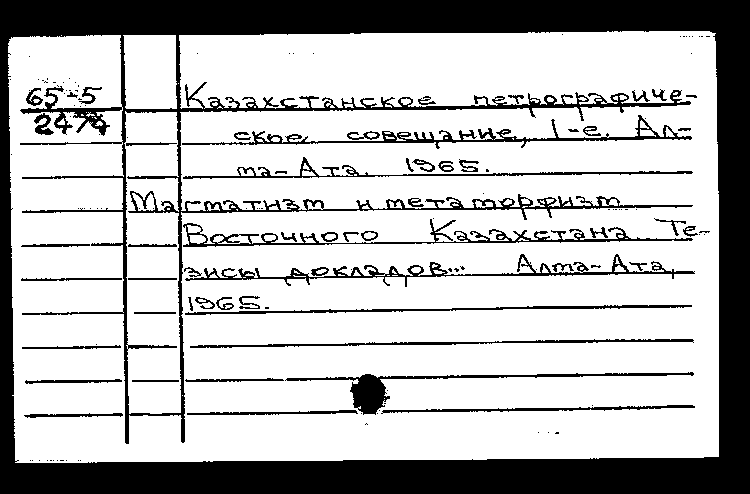 65-5 Казахстанское петрографиче-
ское совещание, 1-е. Ал-
ма-Ата. 1965.
Магматизм и метаморфизм
Восточного Казахстана. Те-
зисы докладов... Алма-Ата,
1965.